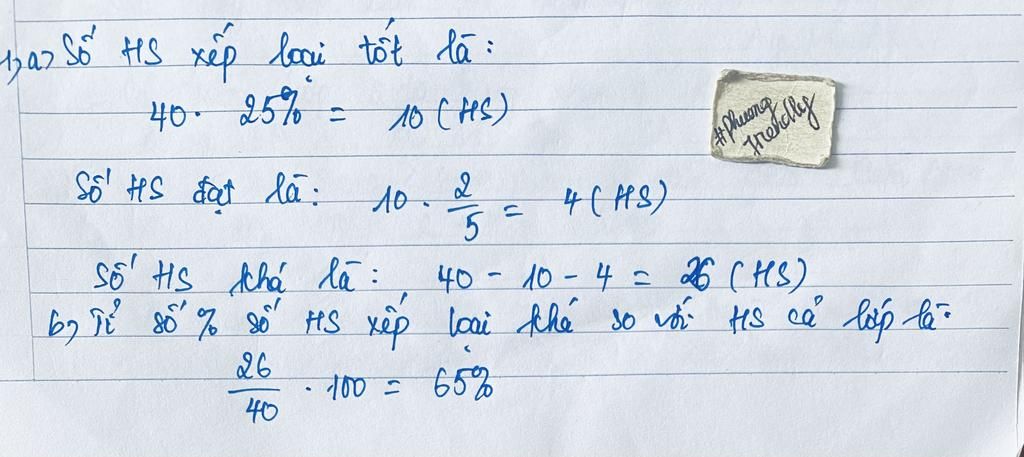 1, a, Số HS xếp loại tốt là:
40 . 25% = 10 (HS)
#Phuong
friendly
Số HS đạt là: 10 . 2/5 = 4 (HS)
Số HS khá là: 40 - 10 - 4 = 26 (HS)
b, Tỉ số % số HS xếp loại khá so với HS cả lớp là:
26/40 . 100 = 65%